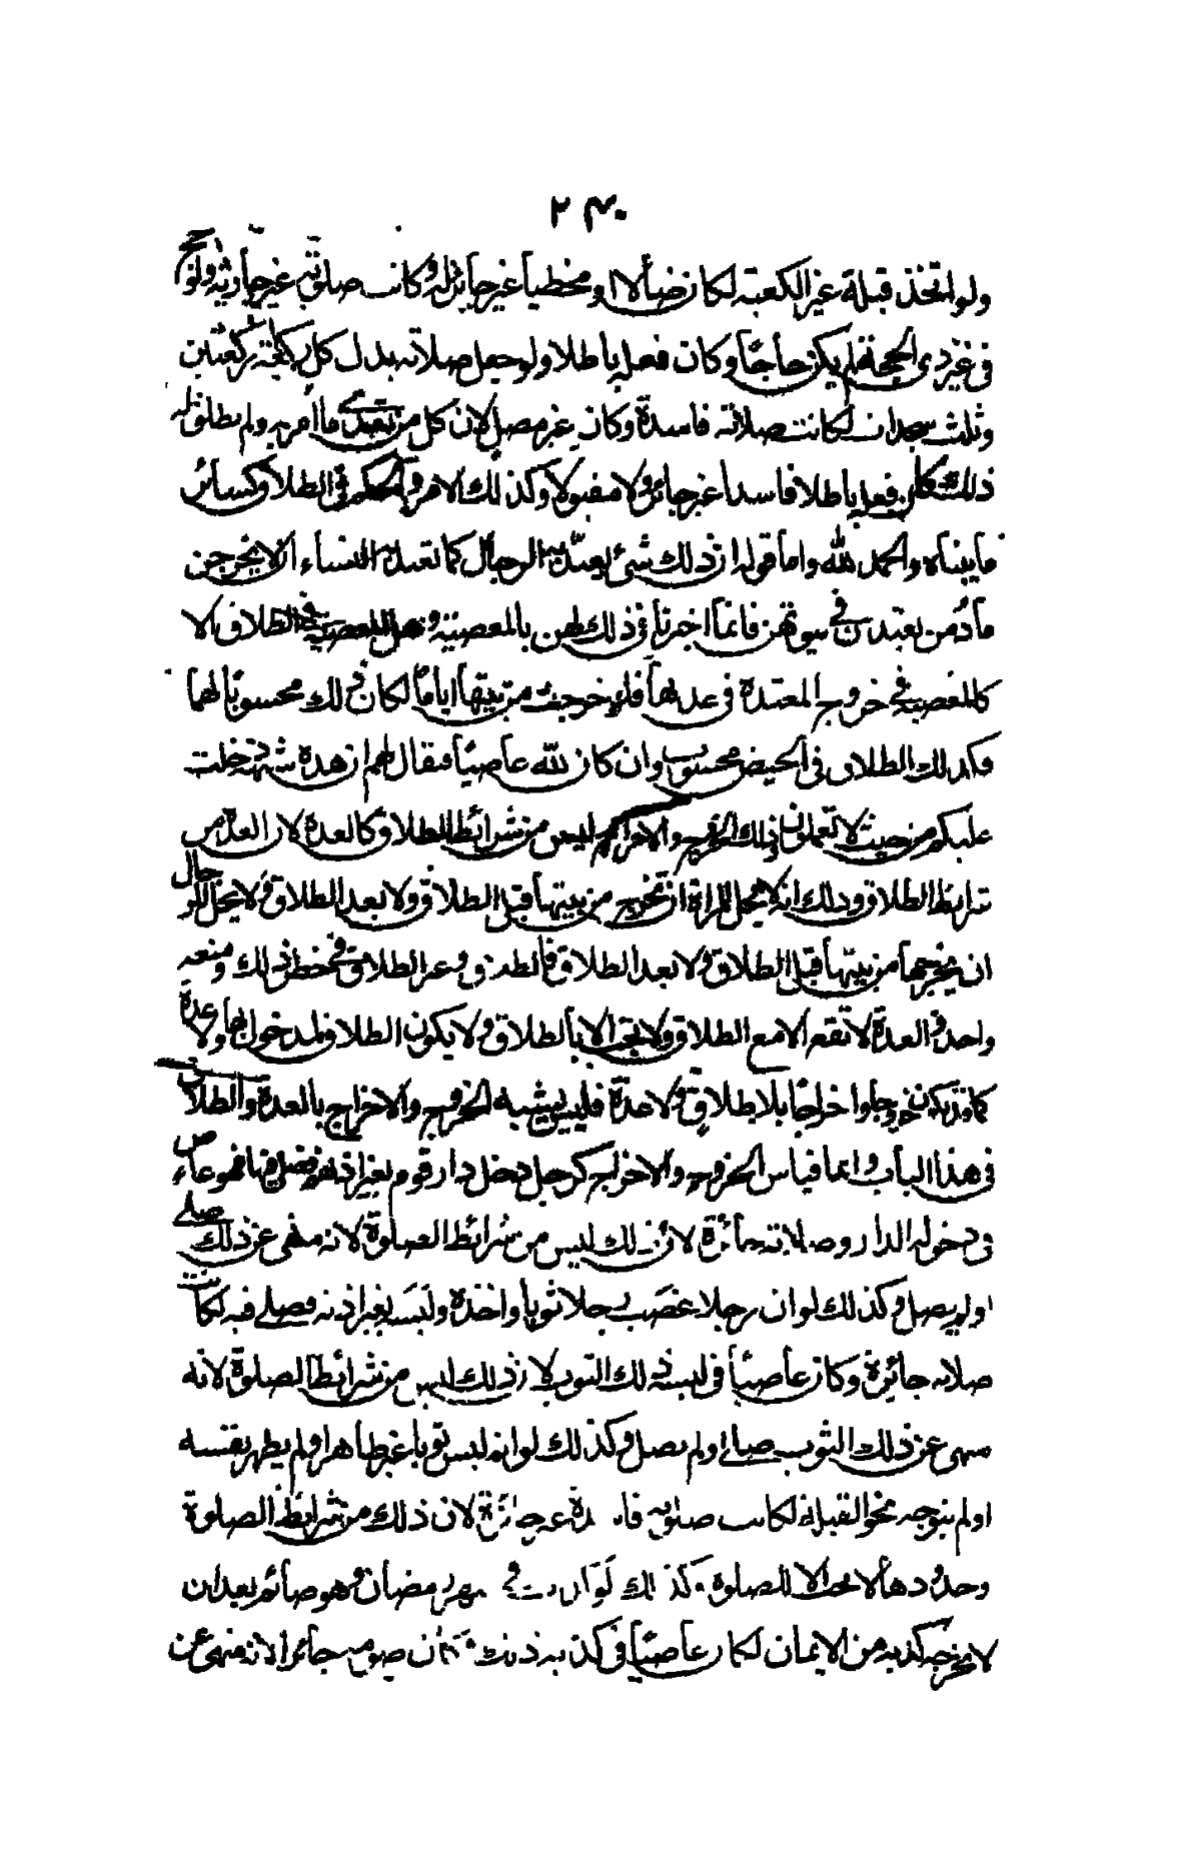 ٢٤٠
ولو اتخذ قبلة غير الكعبة لكان ضالا او مخطيا غير جائز له وكانت صلوته غير جائزة ولو حج
فى غير ذى الحجة لم يكن حاجا وكان فعله باطلا ولو جعل صلاته بدل كل ركعة ركعتين
وثلث سجدات لكانت صلاته فاسدة وكان غير مصل لان كل من تعدى ما أمر به ولم يطلق له
ذلك كان فعله باطلا فاسدا غير جائز ولا مقبولا وكذلك الامر والحكم فى الطلاق كسائر
ما بيناه والحمد لله واما قولهم ان ذلك شئ تعبد به الرجال كما تعبد به النساء الا يخرجن
ما دمن يعتددن فى بيوتهن فانما اخبرنا فى ذلك لهن بالمعصية وهل المعصية فى الطلاق الا
كالمعصية فى خروج المعتدة فى عدتها فلو خرجت من بيتها اياما لكان ذلك محسوبا لها
فكذلك الطلاق فى الحيض محسوب وان كان لله عاصيا فيقال لهم ان هذه شبهة دخلت
عليكم من حيث لا تعلمون وذلك ان الخروج والاخراج ليس من شرائط الطلاق كالعدة لان العدة من
شرائط الطلاق وذلك انه لا يحل للمراة ان تخرج من بيتها قبل الطلاق ولا بعد الطلاق ولا يحل للرجال
ان يخرجها من بيتها قبل الطلاق ولا بعد الطلاق فالطلاق وغير الطلاق فى حظر ذلك ومنعه
واحد والعدة لا تقع الا مع الطلاق ولا تجب الا بالطلاق ولا يكون الطلاق لمدخول بها ولا عدة
كما قد يكون خروجا واخراجا بلا طلاق ولا عدة فليس يشبه الخروج والاخراج بالعدة والطلاق
فى هذا الباب وانما قياس الخروج والاخراج كرجل دخل دار قوم بغير اذنهم فصلى فيها فهو عاص
فى دخوله الدار وصلاته جائزة لان ذلك ليس من شرائط الصلوة لانه منهى عن ذلك صلى
او لم يصل وكذلك لو ان رجلا غصب رجلا ثوبا واخذه ولبسه بغير اذنه فصلى فيه لكانت
صلاته جائزة وكان عاصيا فى لبسه ذلك الثوب لان ذلك ليس من شرائط الصلوة لانه
منهى عن ذلك الثوب صلى او لم يصل وكذلك لو انه لبس ثوبا غير طاهر او لم يطهر نفسه
او لم يتوجه نحو القبلة لكانت صلوته فاسدة غير جائزة لان ذلك من شرائط الصلوة
وحدودها لا يجب الا للصلوة وكذلك لو كذب فى شهر رمضان وهو صائم بعد ان
لا يخرجه كذبه من الايمان لكان عاصيا فى كذبه ذلك وكان صومه جائزا لانه منهى عن